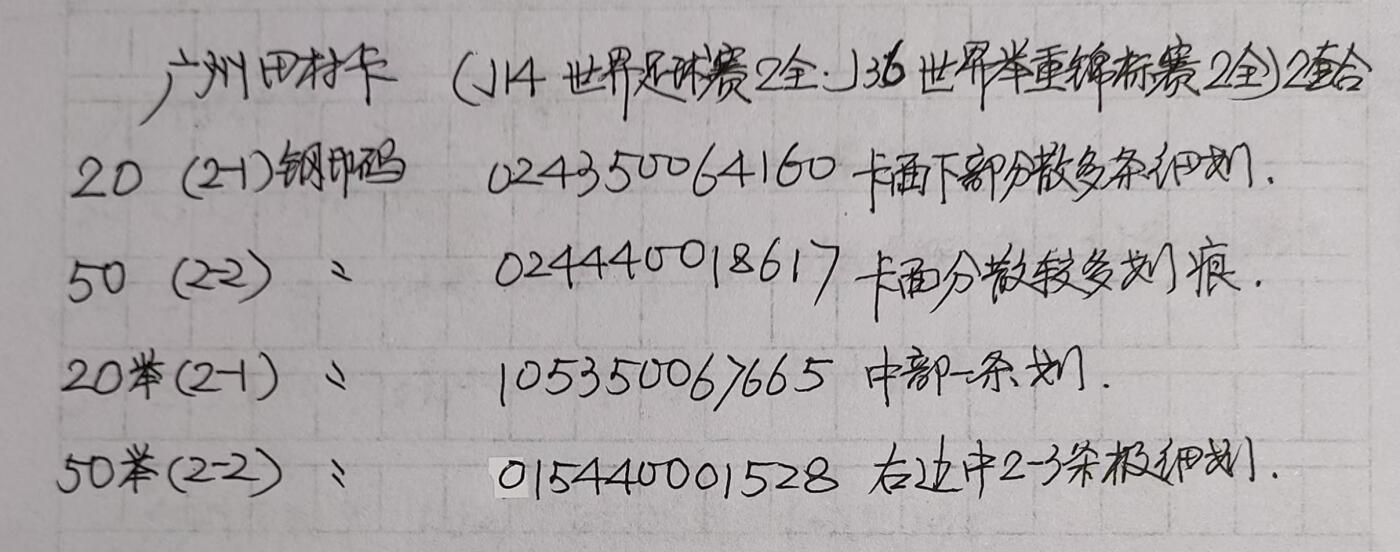 广州田村卡 (J14 世界足球赛2全·J36 世界举重锦标赛2全)2套合
20 (2-1)钢印码 024350064160 卡面下部分散多条细划.
50 (2-2) 〃 024440018617 卡面分散较多划痕.
20举(2-1) 〃 105350067665 中部一条划.
50举(2-2) 〃 015440001528 右边中2-3条极细划.